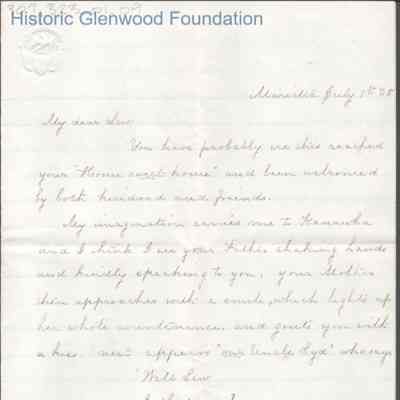 309.323.01.09
Historic Glenwood Foundation
Marietta July 1st 58
My dear Lew
You have probably ere this reached
your "Home sweet home" and been welcomed
by both kindred and friends.
My imagination carries me to Kanawha
and I think I see your Father shaking hands
and kindly speaking to you, your Mother
then approaches with a smile, which lights up
her whole countenance, and greets you with
a kiss. next appears "Uncle who says
'Well Lew